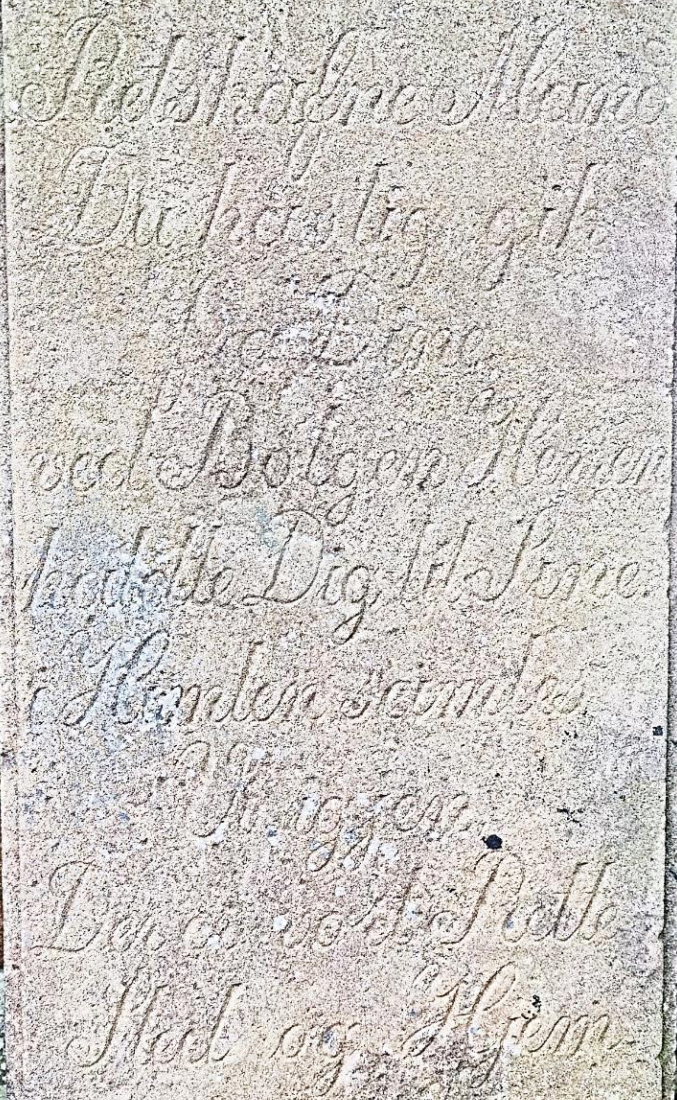 Retskafne Mand
Du hastig gik
fra Dine
ved Bølgen Herren
kaldte Dig til Sine.
i Himlen samles
Vi igjen.
Der er vort Rette
Sted og Hjem